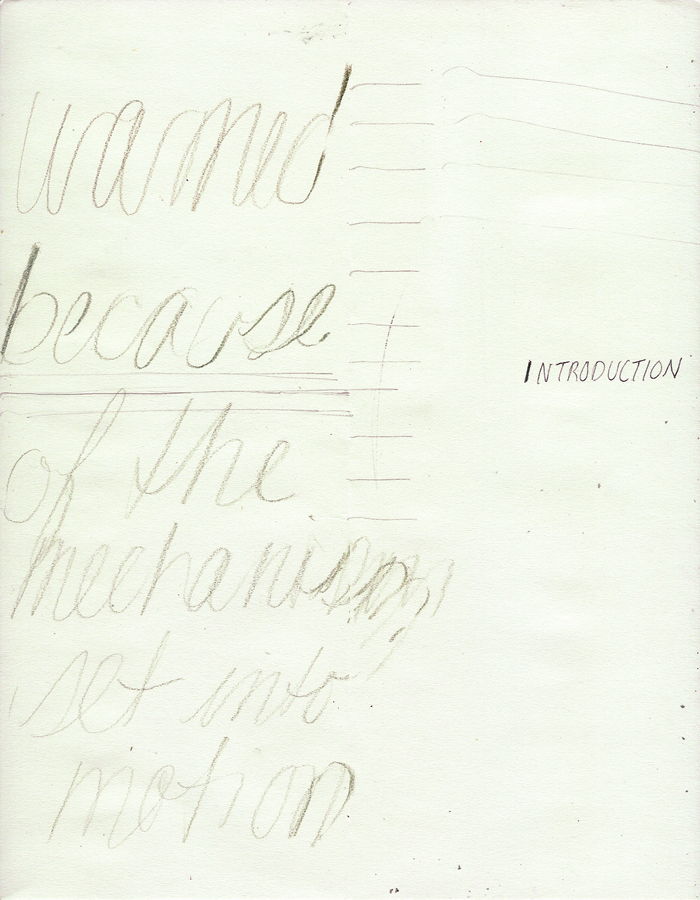 warned
because
INTRODUCTION
of the
mechanism
set into
motion